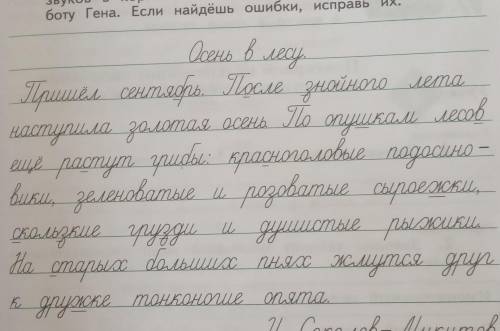 боту Гена. Если найдёшь ошибки, исправь их.
Осень в лесу.
Пришёл сентябрь. После знойного лета
наступила золотая осень. По опушкам лесов
ещё растут грибы: красноголовые подосино-
вики, зеленоватые и розоватые сыроежки,
скользкие грузди и душистые рыжики.
На старых больших пнях жмутся друг
к дружке тонконогие опята.